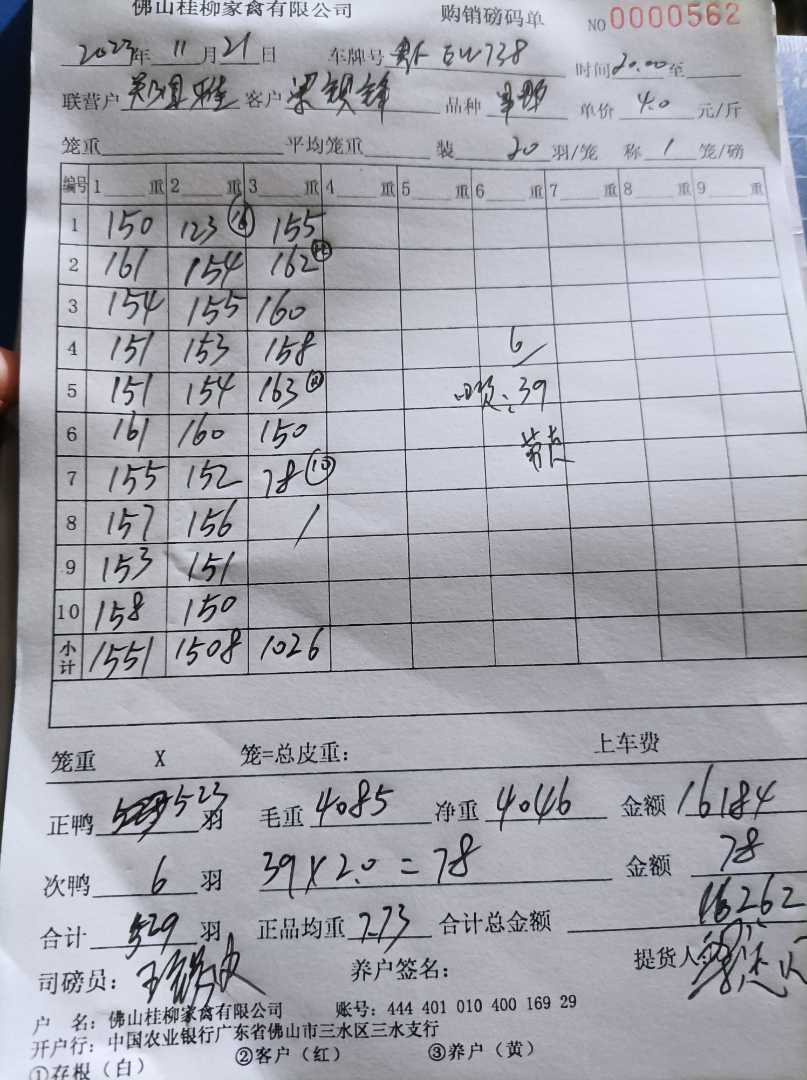 佛山桂柳家禽有限公司 购销磅码单 NO 0000562
2023年 11 月 21 日 车牌号 EW738 时间 20.00 至
联营户 客户 梁锁锋 品种 单价 4.0 元/斤
笼重 平均笼重 装 20 羽/笼 称 1 笼/磅
编号 1 重 2 重 3 重 4 重 5 重 6 重 7 重 8 重 9 重
1 150 123 155
2 161 154 162
3 154 155 160
4 151 153 158 6
5 151 154 163 次: 39
6 161 160 150
7 155 152 78
8 157 156 /
9 153 151
10 158 150
小计 1551 1508 1026
笼重 X 笼=总皮重: 上车费
正鸭 523 羽 毛重 4085 净重 4046 金额 16184
次鸭 6 羽 39×2.0=78 金额 78
合计 529 羽 正品均重 7.73 合计总金额 16262
司磅员: 养户签名: 提货人:
户 名: 佛山桂柳家禽有限公司 账号: 444 401 010 400 169 29
开户行: 中国农业银行广东省佛山市三水区三水支行
①存根(白) ②客户(红) ③养户(黄)